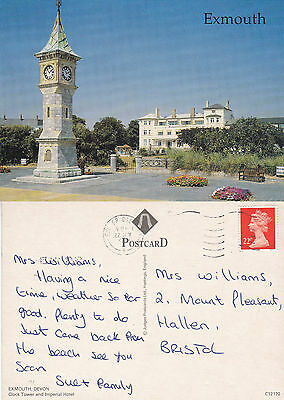 Exmouth
POSTCARD
© Judges Postcards Ltd, Hastings, England
22P
Mrs Williams,
Having a nice
time, weather so far
good. Plenty to do
Just came back from
the beach see you
Soon
Sue & Family
Mrs Williams,
2. Mount Pleasant,
Hallen,
BRISTOL
EXMOUTH, DEVON
Clock Tower and Imperial Hotel
C12170